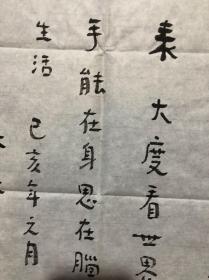 来 大度看世界
手能在身思在腦
生活 己亥年元月